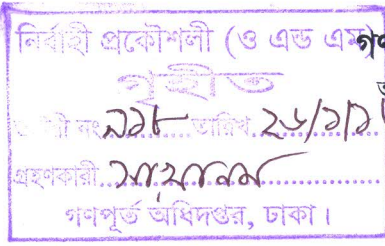 নির্বাহী প্রকৌশলী (ও এন্ড এম)
গৃহীত
নং ৯১৮ তারিখ ২৬/১/১
গ্রহণকারী
গণপূর্ত অধিদপ্তর, ঢাকা।